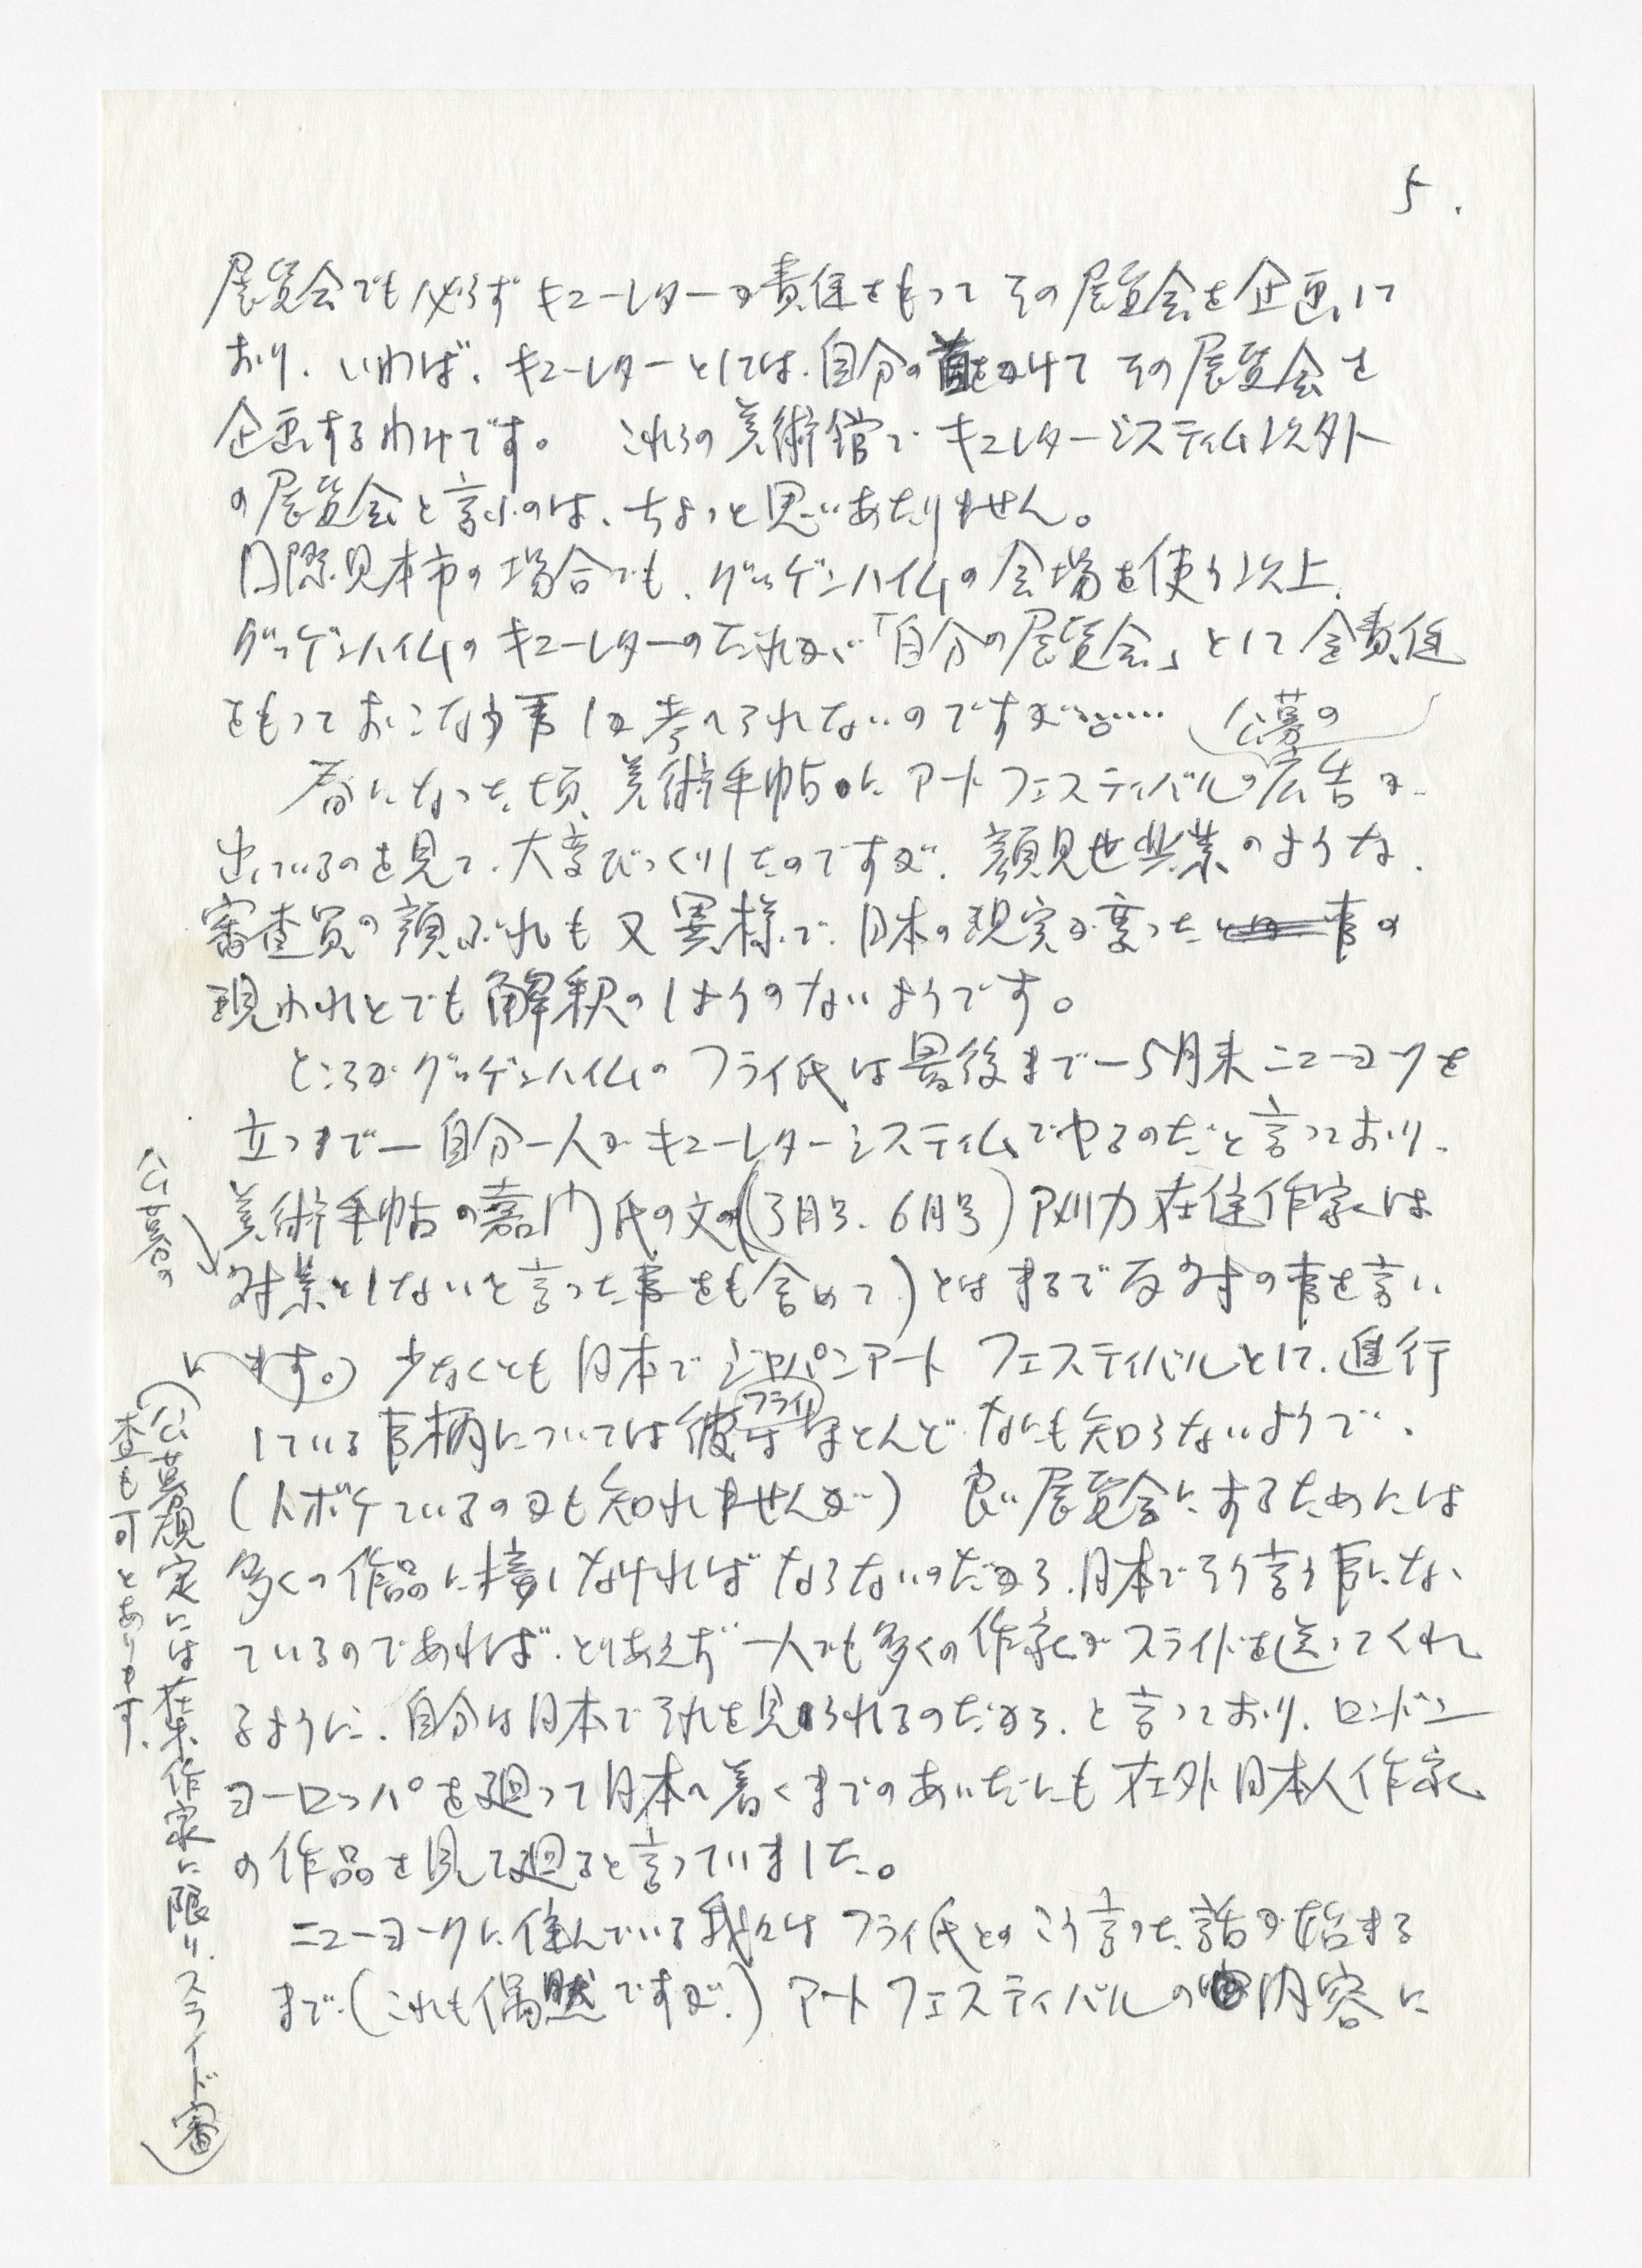 5.
展覧会でも必らずキューレターが責任をもってその展覧会を企画して
おり、いわば、キューレターとしては、自分の首をかけてその展覧会を
企画するわけです。 これらの美術館でキュレターシスティム以外
の展覧会と言ふのは、ちょっと思いあたりません。
国際見本市の場合でも、グッゲンハイムの会場を使う以上、
グッゲンハイムのキューレターのだれかが「自分の展覧会」として全責任
をもっておこなう事しか考へられないのですが……
春になった頃、美術手帖にアートフェスティバルの公募の広告が
出ているのを見て、大変びっくりしたのですが、顔見世興業のような、
審査員の顔ぶれも又異様で、日本の現実が変った事の
現われとでも解釈のしようのないようです。
ところがグッゲンハイムのフライ氏は最後まで―5月末ニューヨークを
立つまで―自分一人がキューレターシスティムでやるのだと言っており、
美術手帖の嘉門氏の文(3月号、6月号)アメリカ在住作家は
公募の対業としないと言った事をも含めて)とはまるで反対の事を言い
います。 少なくとも日本でジャパンアート フェスティバルとして、進行
している事柄については彼フライはほとんどなにも知らないようで、
(トボケているのかも知れませんが) 良い展覧会にするためには
多くの作品に接しなければならないのだから、日本でそう言う事になっ
ているのであれば、とりあえず一人でも多くの作家がスライドを送ってくれ
るように、自分は日本でそれを見られるのだから、と言っており、ロンドン
ヨーロッパを廻って日本へ着くまでのあいだにも在外日本人作家
の作品を見て廻ると言っていました。
ニューヨークに住んでいる我々はフライ氏とのこう言った話が始まる
まで(これも偶然ですが、)アートフェスティバルの内容に
(公募規定には在米作家に限り、スライド審
査も可とあります。)